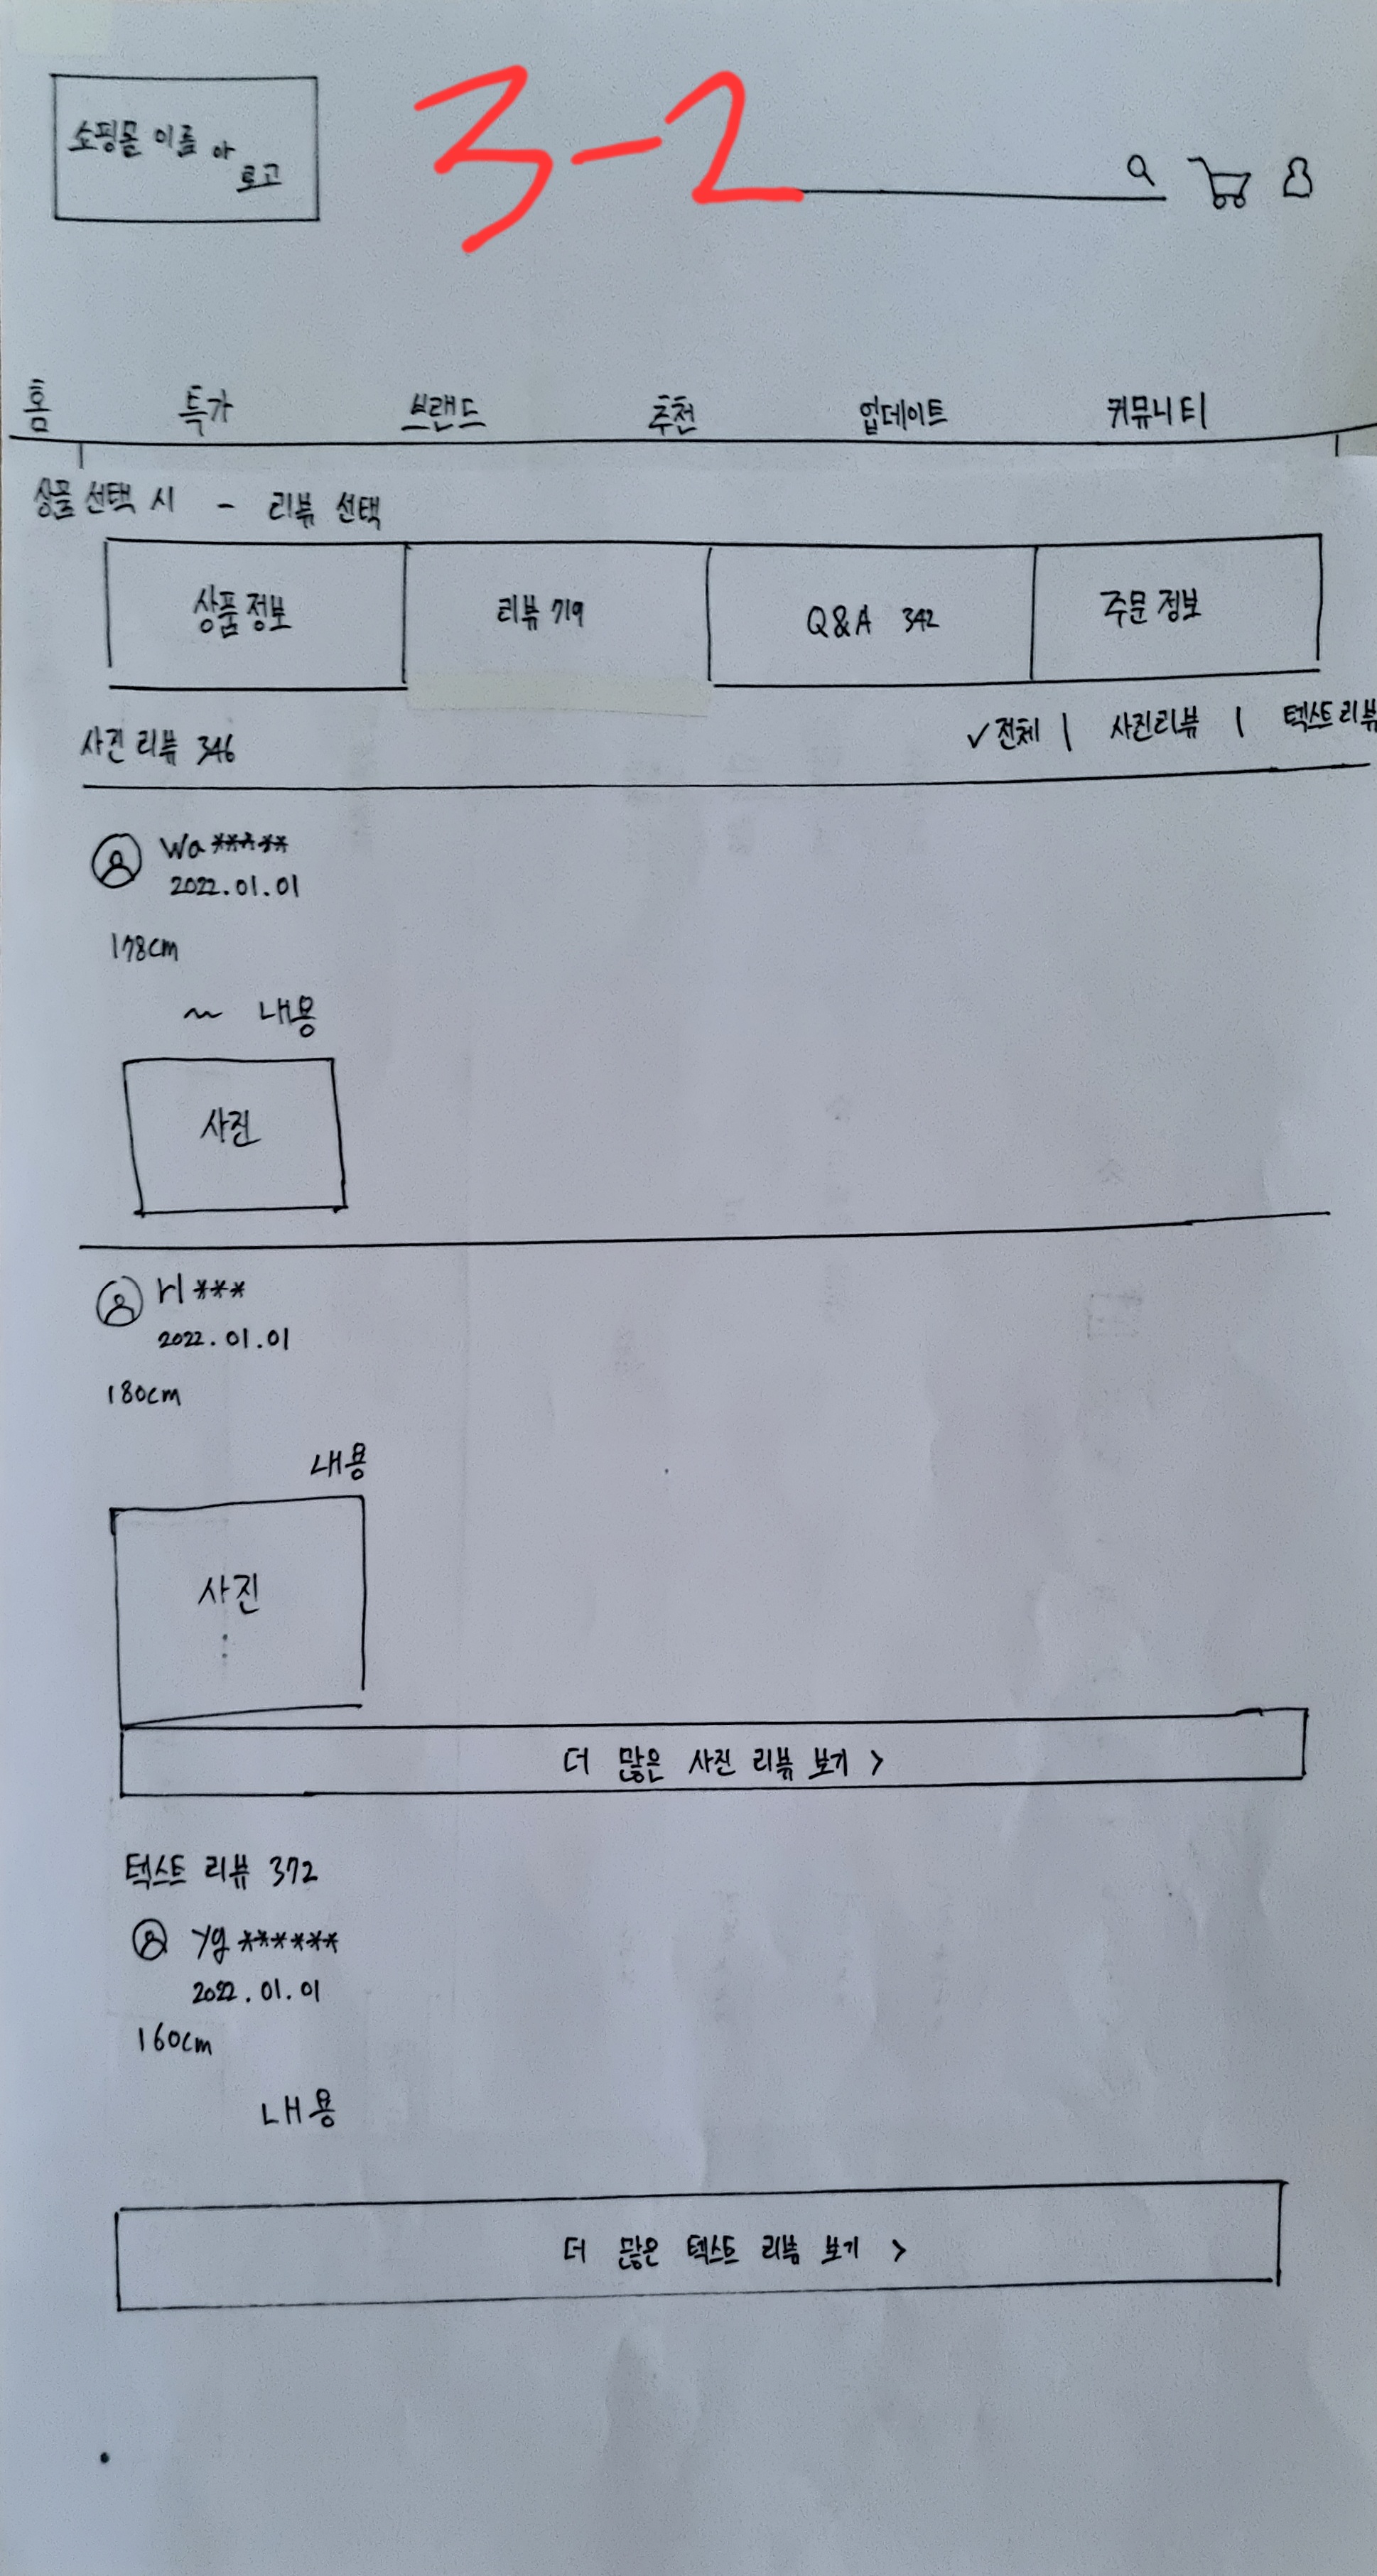 3-2
쇼핑몰 이름 or
로고
홈 특가 브랜드 추천 업데이트 커뮤니티
상품 선택 시 - 리뷰 선택
상품정보 리뷰 719 Q&A 342 주문 정보
사진 리뷰 346 ✓전체 | 사진리뷰 | 텍스트리뷰
Wa*****
2022.01.01
178cm
~ 내용
사진
rl***
2022.01.01
180cm
내용
사진
더 많은 사진 리뷰 보기 >
텍스트 리뷰 372
yg******
2022.01.01
160cm
내용
더 많은 텍스트 리뷰 보기 >